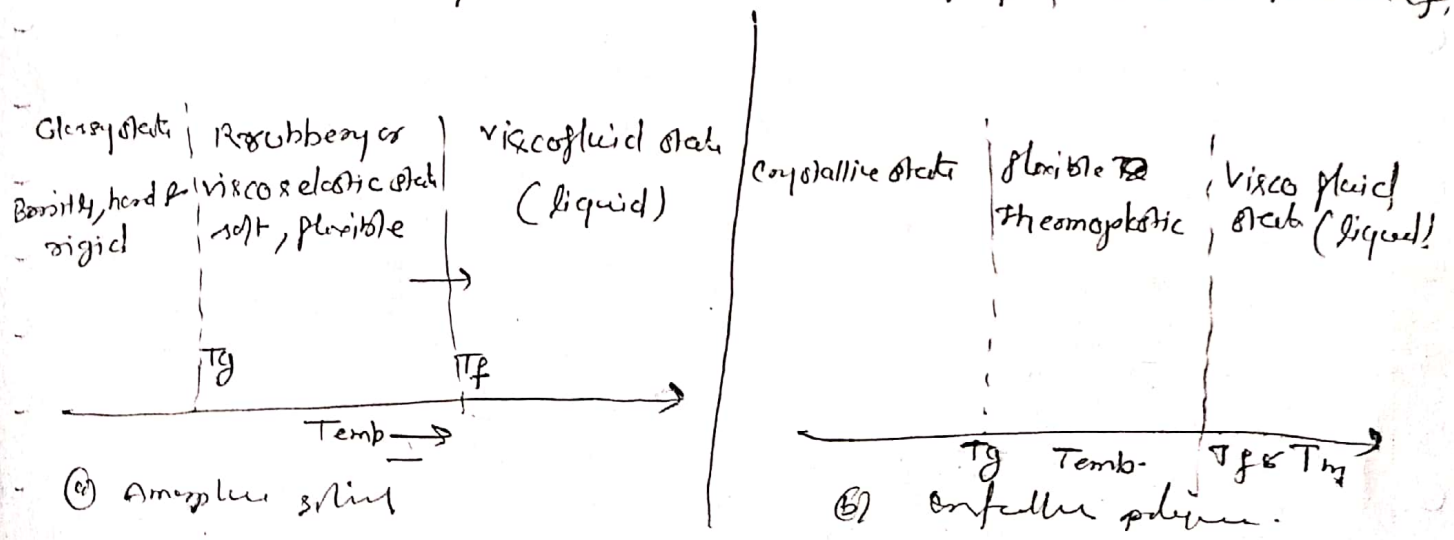 Glassy state
Brittle, hard &
rigid
Rrubbery or
viscoselastic state
soft, flexible
Tg
viscofluid state
(liquid)
Tf
Temb
(a) Amorphous solid
Crystalline state
flexible
Thermoplastic
Visco fluid
state (liquid)
Tg Temb. Tf or Tm
(b) crystalline polymer.